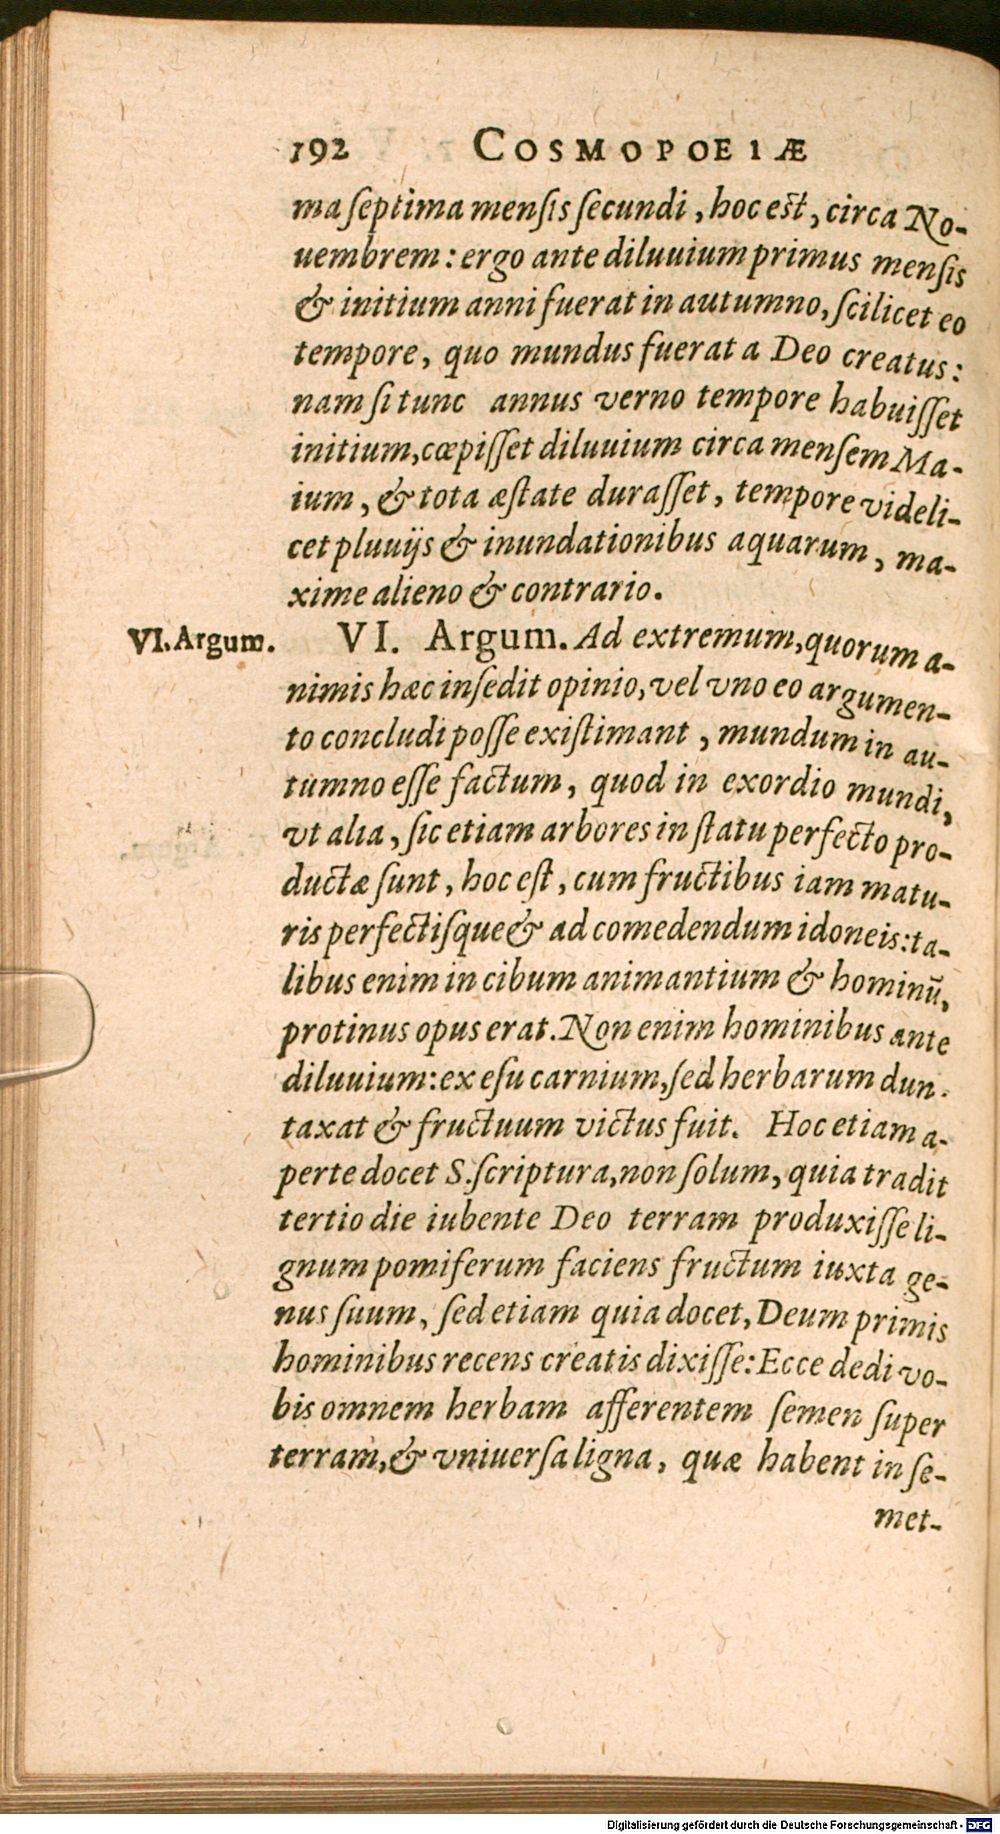 192 COSMOPOEIÆ
ma ſeptima menſis ſecundi, hoc eſt, circa No-
uembrem: ergo ante diluuium primus menſis
& initium anni fuerat in autumno, ſcilicet eo
tempore, quo mundus fuerat a Deo creatus:
nam ſi tunc annus verno tempore habuiſſet
initium, cœpiſſet diluuium circa menſem Ma-
ium, & tota æſtate duraſſet, tempore videli-
cet pluuijs & inundationibus aquarum, ma-
xime alieno & contrario.
VI. Argum.
VI. Argum. Ad extremum, quorum a-
nimis hæc inſedit opinio, vel vno eo argumen-
to concludi poſſe exiſtimant, mundum in au-
tumno eſſe factum, quod in exordio mundi,
vt alia, ſic etiam arbores in ſtatu perfecto pro-
ductæ ſunt, hoc eſt, cum fructibus iam matu-
ris perfectiſque & ad comedendum idoneis: ta-
libus enim in cibum animantium & hominū,
protinus opus erat. Non enim hominibus ante
diluuium: ex eſu carnium, ſed herbarum dun-
taxat & fructuum victus fuit. Hoc etiam a-
perte docet S. ſcriptura, non ſolum, quia tradit
tertio die iubente Deo terram produxiſſe li-
gnum pomiferum faciens fructum iuxta ge-
nus ſuum, ſed etiam quia docet, Deum primis
hominibus recens creatis dixiſſe: Ecce dedi vo-
bis omnem herbam afferentem ſemen ſuper
terram, & vniuerſa ligna, quæ habent in ſe-
met-
Digitalisierung gefördert durch die Deutsche Forschungsgemeinschaft - DFG